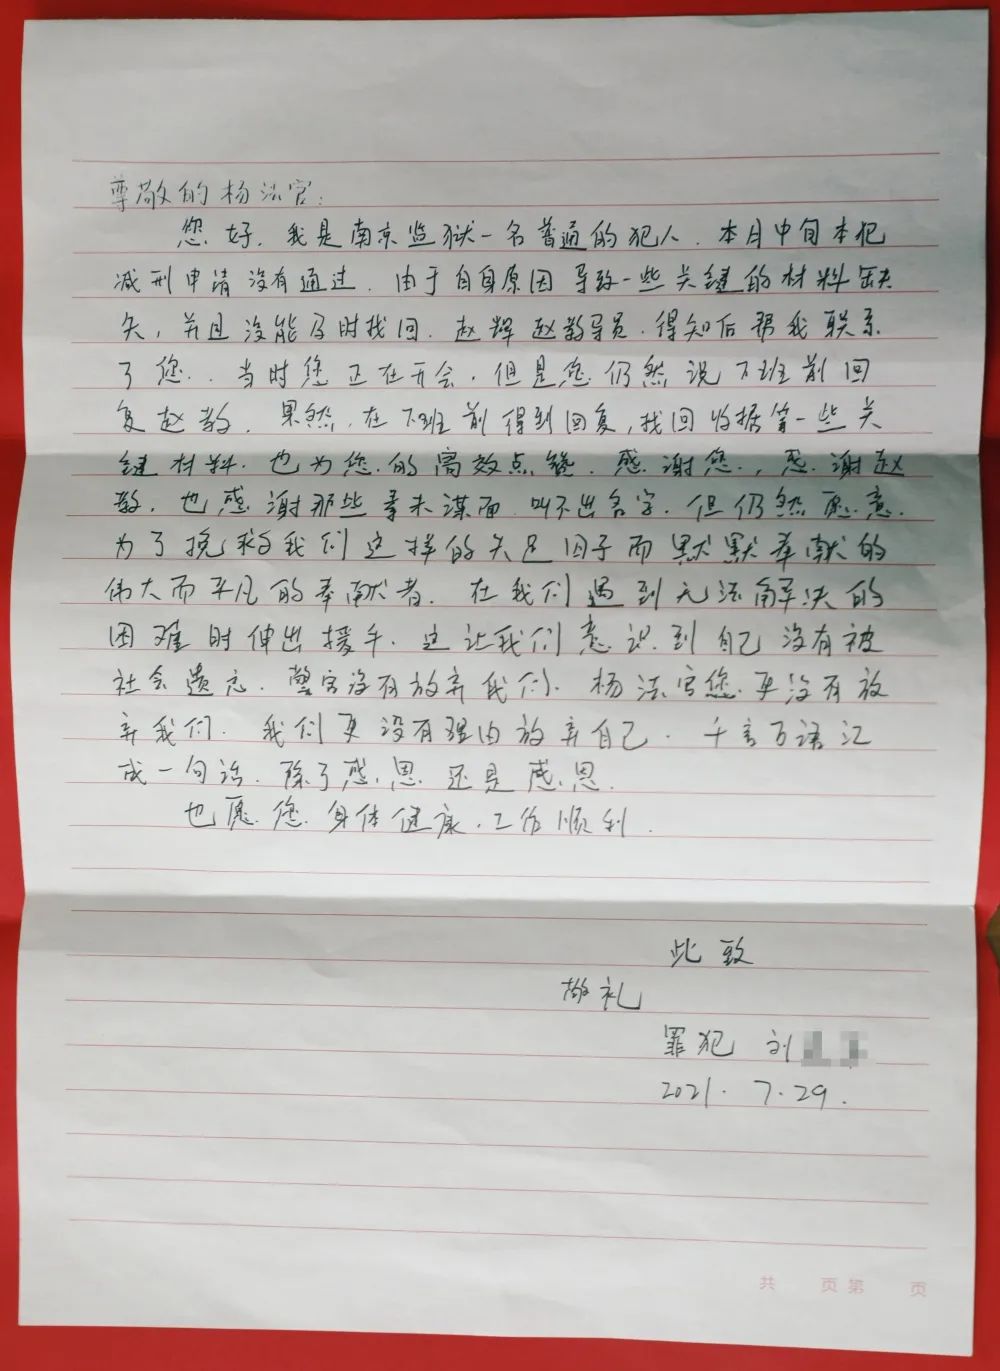 尊敬的杨法官：
您好，我是南京监狱一名普通的犯人．本月中旬本犯
减刑申请没有通过．由于自身原因导致一些关键的材料缺
失，并且没能及时找回．赵辉赵教导员．得知后帮我联系
了您．当时您正在开会．但是您仍然说下班前回
复赵教．果然．在下班前得到回复，找回收据等一些关
键材料．也为您的高效点赞．感谢您．，感谢赵
教．也感谢那些素未谋面．叫不出名字．但仍然愿意．
为了挽救我们这样的失足因子而默默奉献的
伟大而平凡的奉献者．在我们遇到无法解决的
困难时伸出援手．这让我们意识到自己没有被
社会遗忘．警官没有放弃我们．杨法官您更没有放
弃我们．我们更没有理由放弃自己．千言万语汇
成一句话．除了感恩还是感恩．
也愿您身体健康．工作顺利．
此致
敬礼
罪犯 刘
2021．7．29．
共 页 第 页